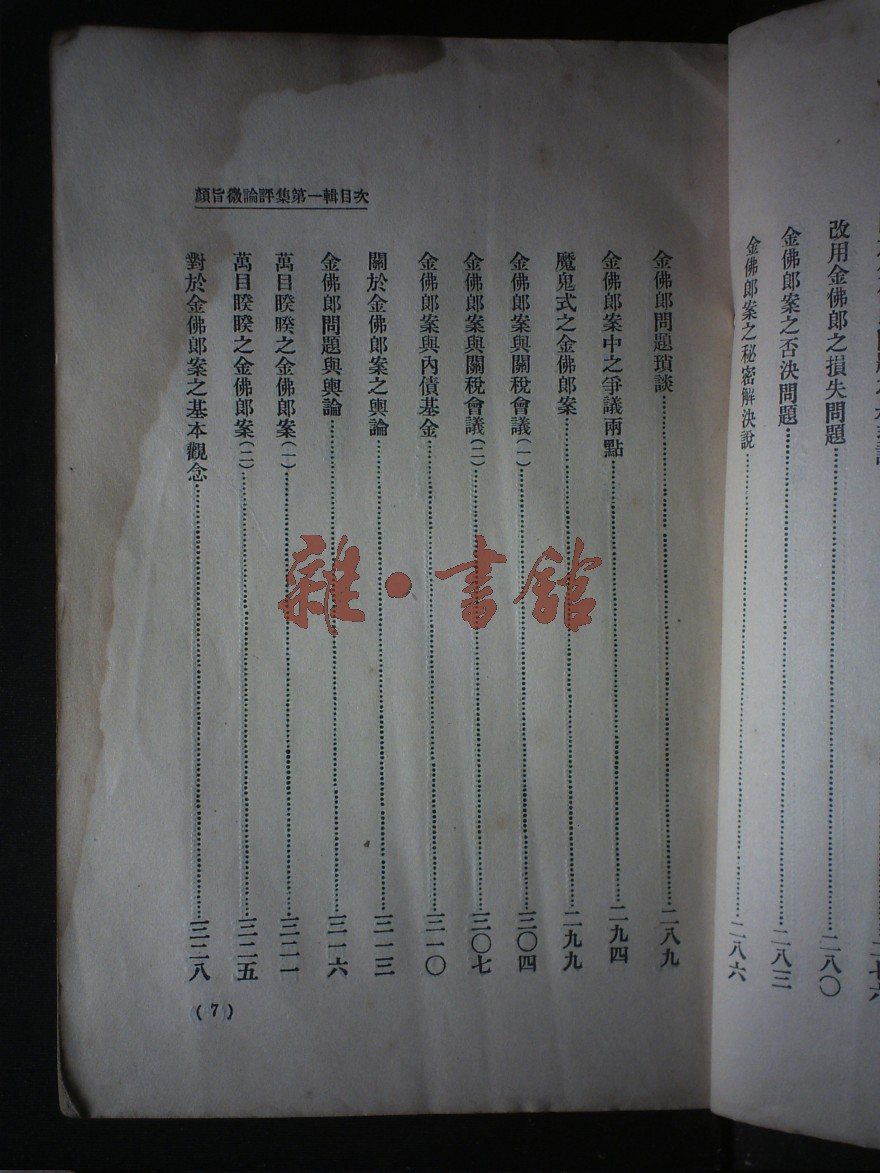 改用金佛郎之損失問題……二八〇
金佛郎案之否決問題……二八三
金佛郎案之秘密解決說……二八六
顏旨微論評集第一輯目次
金佛郎問題瑣談……二八九
金佛郎案中之爭議兩點……二九四
魔鬼式之金佛郎案……二九九
金佛郎案與關稅會議(一)……三〇四
金佛郎案與關稅會議(二)……三〇七
金佛郎案與內債基金……三一〇
關於金佛郎案之輿論……三一三
金佛郎問題與輿論……三一六
萬目睽睽之金佛郎案(一)……三二一
萬目睽睽之金佛郎案(二)……三二五
對於金佛郎案之基本觀念……三二八
(7)
雜·書館